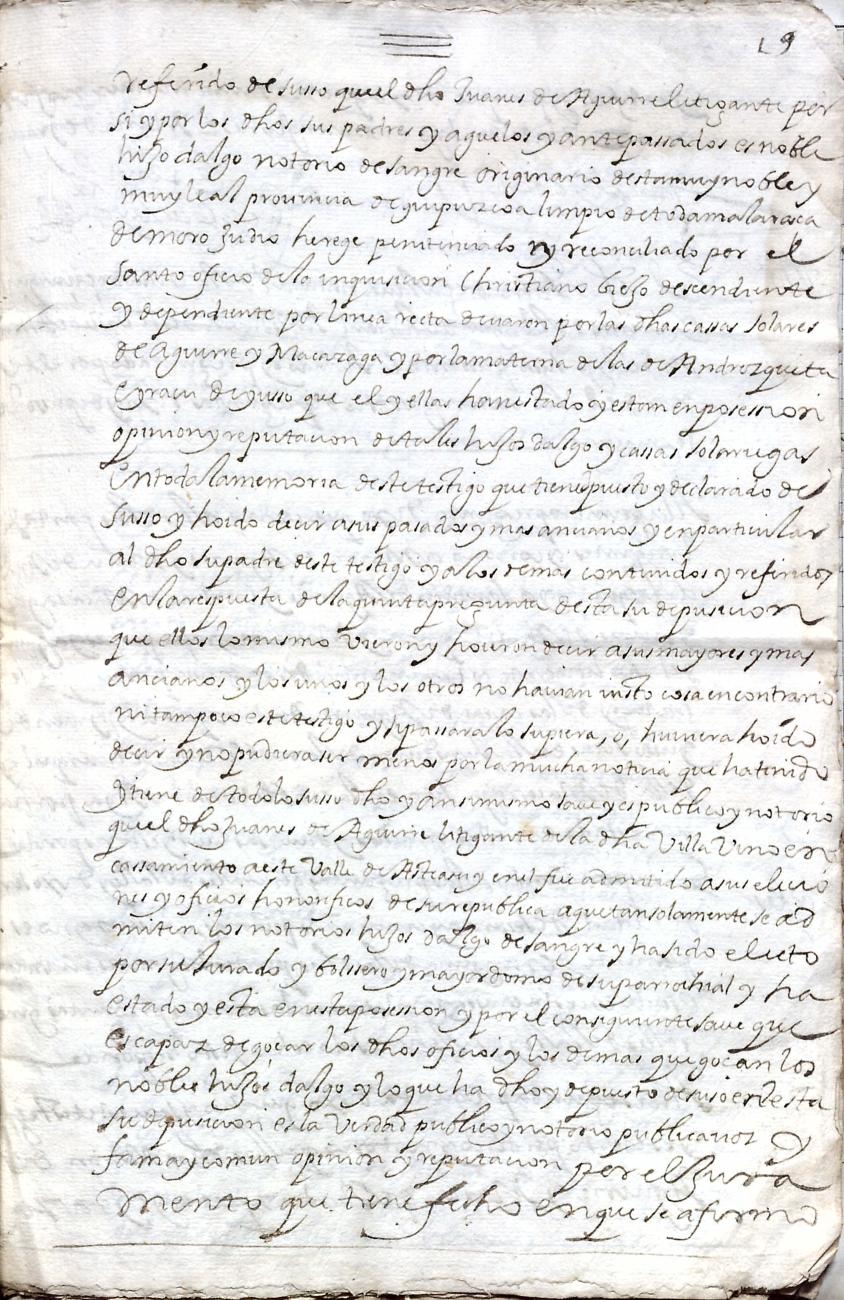 19
referido de susso que el dho Juanes de Aguirre litigante por
si y por los dhos sus padres y aguelos y antepassados es noble
hijo dalgo notorio de sangre originario desta muy noble y
muy leal provincia de guipuzcoa limpio de toda mala raca
de moro Judio herege penitenciado y reconciliado por el
santo oficio de la inquisicion Christiano biejo descendiente
y dependiente por linea recta de varon por las dhas cassas solares
de Aguirre y Macazaga y por la materna de las de Androzqueta
Eyracu de yusso que el y ellas han estado y estan en possession
opinion y reputacion de tales hijos dalgo y cassas solariegas
En toda la memoria deste testigo que tiene puesto y declarado de
susso y hoido decir a sus pasados y mas ancianos y en particular
al dho su padre deste testigo y a los demas contenidos y referidos
en la respuesta de la quinta pregunta desta su deposicion
que ellos lo mismo vieron y hoieron decir a sus mayores y mas
ancianos y los unos y los otros no havian visto cosa en contrario
ni tampoco este testigo y si passara lo supiera, o, huviera hoido
decir y no pudiera ser menos por la mucha noticia que ha tenido
y tiene de todo lo susso dho y ansimismo save y es publico y notorio
que el dho Juanes de Aguirre litigante de la dha Villa Vino en
cassamiento a este Valle de Asteasu y en el fue admitido a sus elecio
nes y oficios honorificos de su republica a que tan solamente se ad
miten los notorios hijos dalgo de sangre y ha sido electo
por su Jurado y bolssero y mayordomo de su parrochial y ha
estado y esta en esta possession y por el consiguiente save que
es capaz de gocar los dhos oficios y los demas que gocan los
nobles hijos dalgo y lo que ha dho y depuesto de suso en esta
su deposicion es la Verdad publico y notorio publica voz y
fama y comun opinion y reputacion por el Jura
mento que tiene fecho en que se afirmo